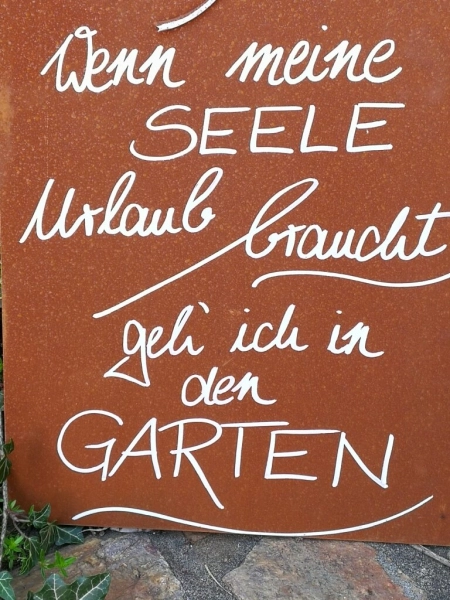 Wenn meine
SEELE
Urlaub braucht
geh' ich in
den
GARTEN